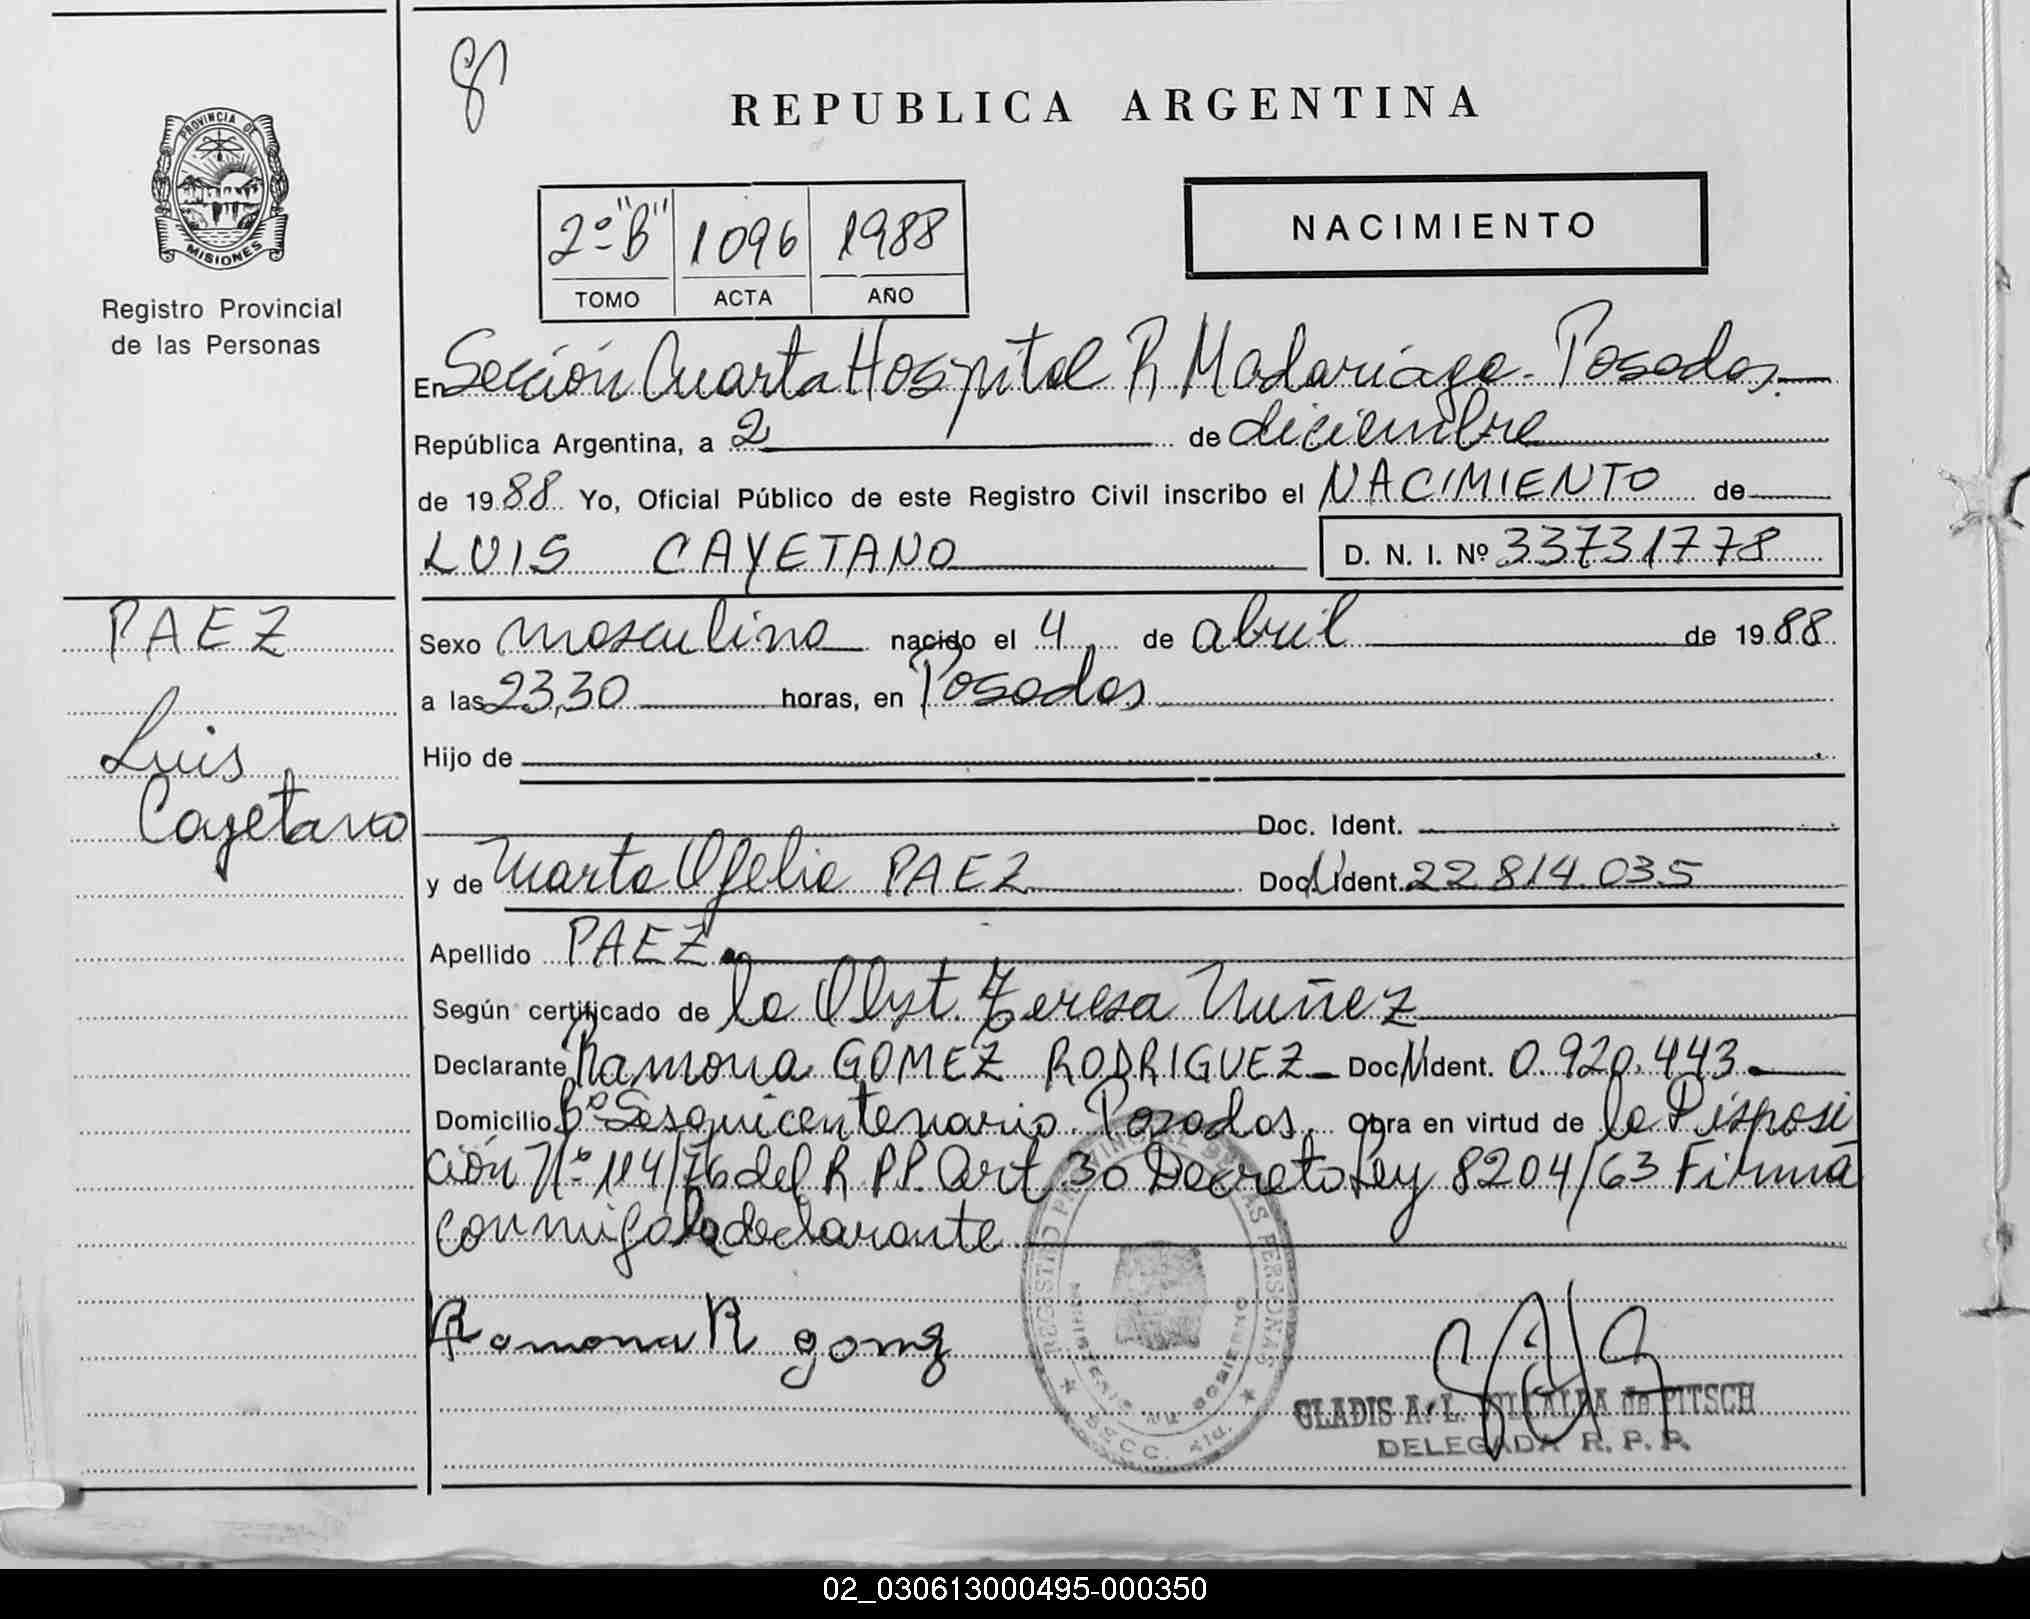 8
REPUBLICA ARGENTINA
PROVINCIA DE
MISIONES
Registro Provincial
de las Personas
2º "B" 1096 1988
TOMO ACTA AÑO
NACIMIENTO
En Sección Cuarta Hospital R Madariaga - Posadas.
República Argentina, a 2 de diciembre
de 1988 Yo, Oficial Público de este Registro Civil inscribo el NACIMIENTO de
LUIS CAYETANO D. N. I. Nº 33731778
PAEZ
Luis
Cayetano
Sexo masculino nacido el 4 de abril de 1988
a las 23,30 horas, en Posadas
Hijo de
Doc. Ident.
y de Marta Ofelia PAEZ Doc. Ident. 22 814.035
Apellido PAEZ
Según certificado de la Obst. Teresa Nuñez
Declarante Ramona GOMEZ RODRIGUEZ - Doc. Ident. 0.920.443
Domicilio Bº Sesquicentenario. Posadas. Obra en virtud de la Disposi
ción Nº 114/76 del R.P.P. Art 30 Decreto Ley 8204/63 Firma
conmigo la declarante
Ramona R gomz
REGISTRO PROVINCIAL DE LAS PERSONAS
MINISTERIO DE GOBIERNO
SECC. 4ta.
GLADIS A. L. de PITSCH
DELEGADA R. P. P.
02_030613000495-000350